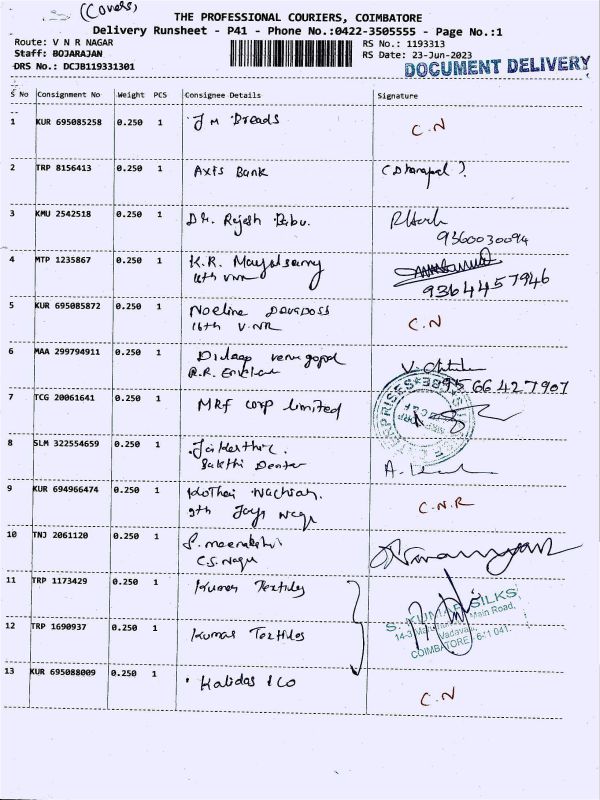 (Covers)
THE PROFESSIONAL COURIERS, COIMBATORE
Delivery Runsheet - P41 - Phone No.:0422-3505555 - Page No.:1
Route: V N R NAGAR
RS No.: 1193313
Staff: BOJARAJAN
RS Date: 23-Jun-2023
DRS No.: DCJB119331301
DOCUMENT DELIVERY
S No Consignment No Weight PCS Consignee Details Signature
1 KUR 695085258 0.250 1 J M Dreads C.N
2 TRP 8156413 0.250 1 Axis Bank
3 KMU 2542518 0.250 1 Dr. Rajesh Babu.
9360030094
4 MTP 1235867 0.250 1 K.R.
16th VNR 9364457946
5 KUR 695085872 0.250 1 Noeline Devadoss
16th V.NR C.N
6 MAA 299794911 0.250 1 venugopal
R.R. 9566427907
7 TCG 20061641 0.250 1 MRF Corp Limited
8 SLM 322554659 0.250 1
Sakthi Dental
9 KUR 694966474 0.250 1 Kothai Nachiar.
9th Jaya Nagar C.N.R
10 TNJ 2061120 0.250 1 S. Meenakshi
C.S. Nagar
11 TRP 1173429 0.250 1 Kumar Textiles
S. KUMAR SILKS
Main Road,
Vadavalli
COIMBATORE - 641 041.
12 TRP 1690937 0.250 1 Kumar Textiles
13 KUR 695088009 0.250 1 Kalidas & Co C.N